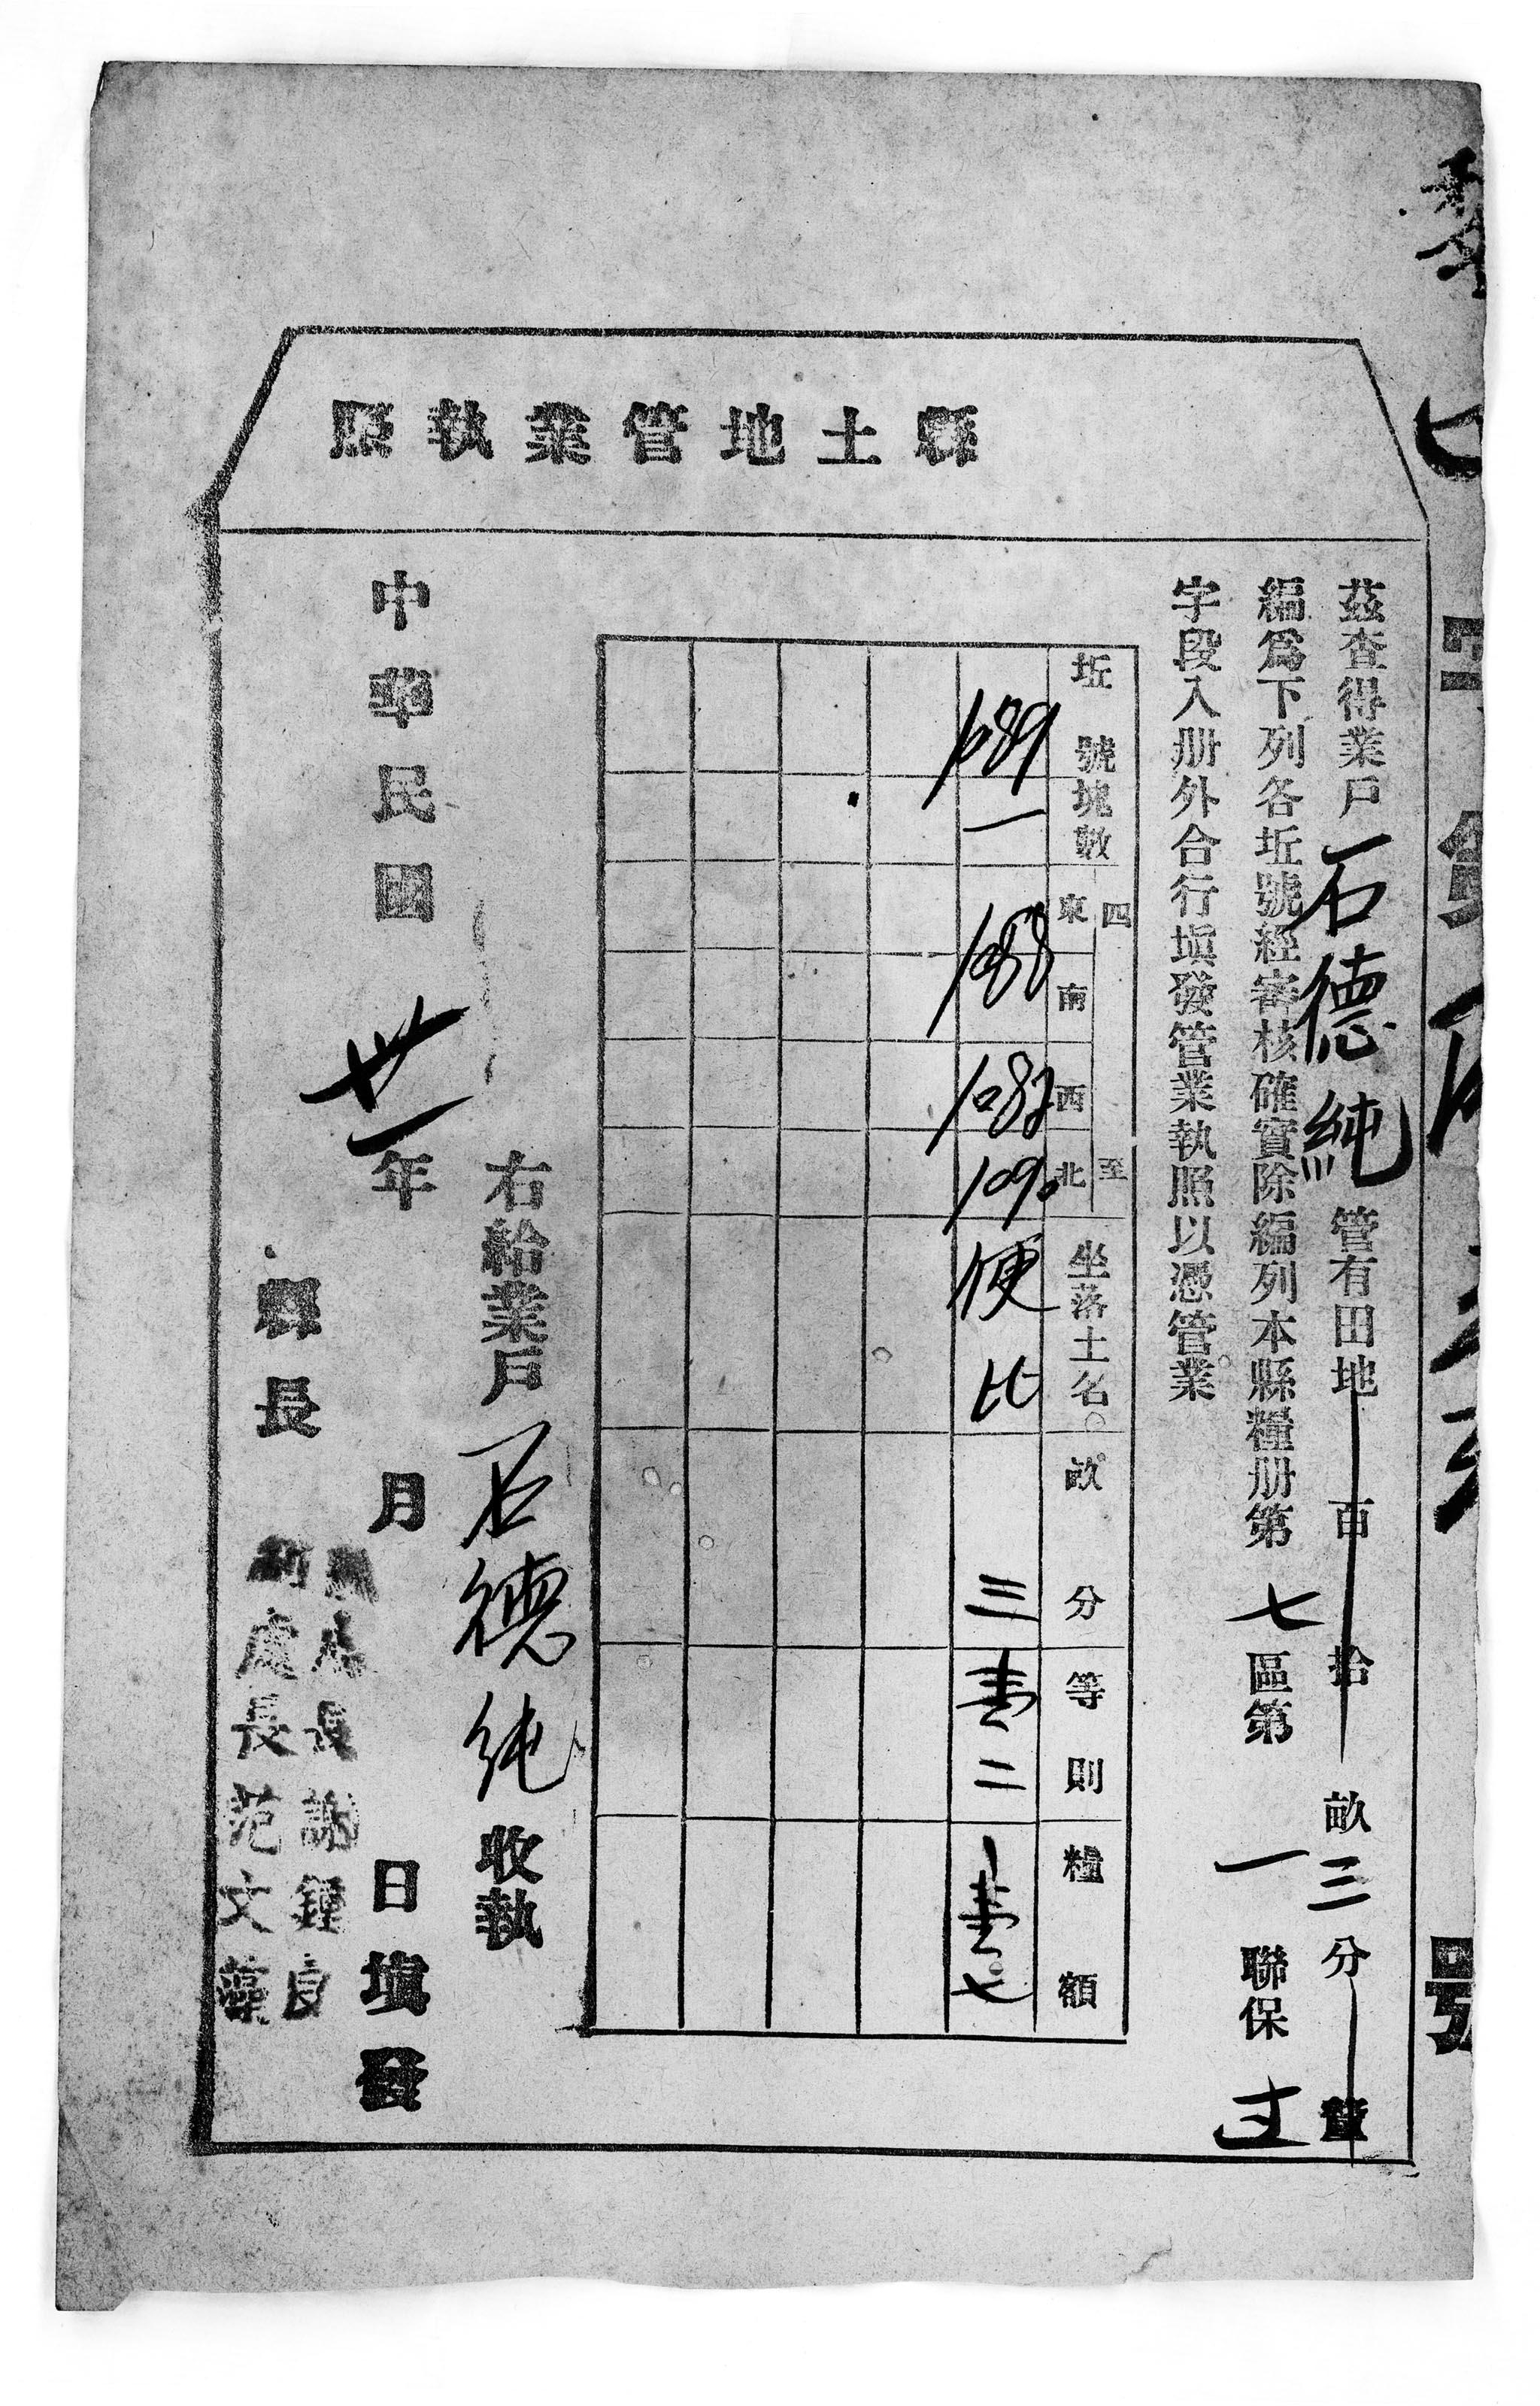 縣土地管業執照
茲查得業戶石德純管有田地百拾畝三分釐
編爲下列各坵號經審核確實除編列本縣糧册第七區第一聯保
字段入册外合行塡發管業執照以憑管業
坵號 塊數 四至 東 南 西 北 坐落土名 畝分 等則 糧額
1089 一 1088 1082 1090 便比 三 二 七
右給業戶石德純收執
中華民國卅一年月日塡發
縣長
處長謝鍾良
副處長范文藻
號